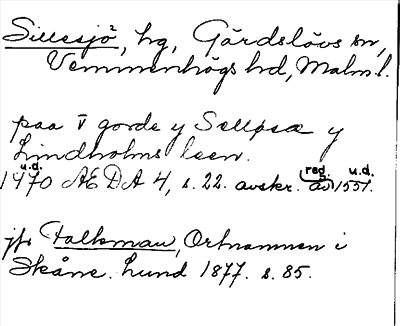 Sillesjö², hg, Gärdslövs sn,
Vemmenhögs hd, Malm.l.
paa V gorde y Sellpsæ y
Lindholms leen.
u.d. reg. u.d.
1470 ÆDA 4, s. 22. avskr. av 1551.
jfr Falkman, Ortnamnen i
Skåne. Lund 1877. s. 85.